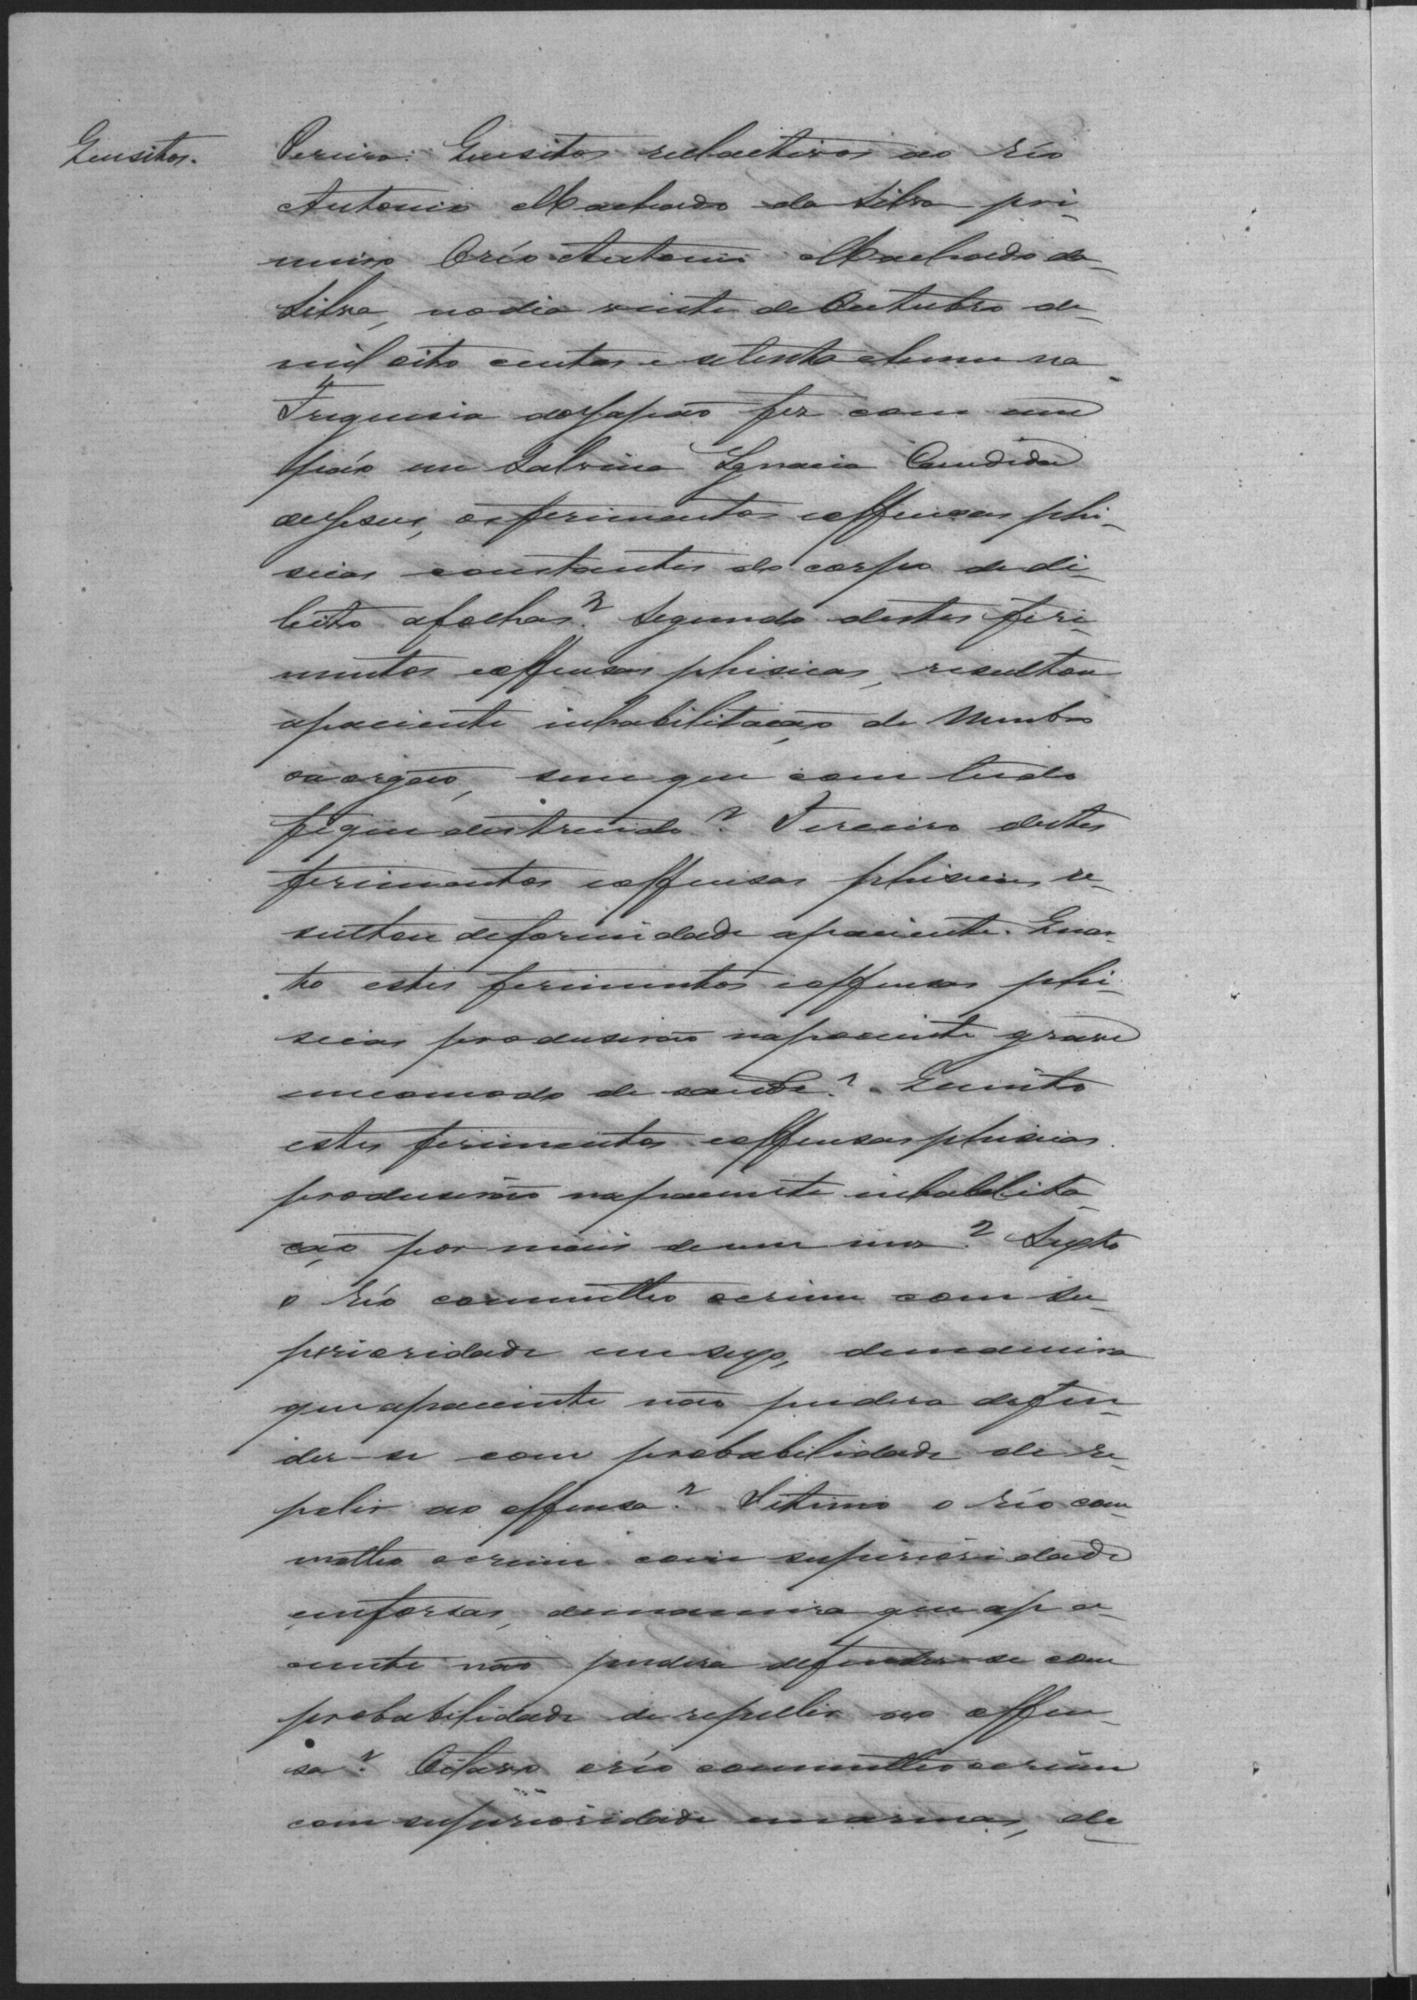 Quesitos.
Pereira. Quesitos relactivos ao réo
Antonio Machado da Silva pri-
meiro O réo Antonio Machado da
Silva, no dia vinte de Outubro de
mil oito centos e setenta e hum na
Freguesia do Japão fez com um
páo em Salvina Ignacia Candida
de Jesus, os ferimentos e offensas phi-
sicas constantes do corpo de di-
licto a folhas? Segundo destes feri-
mentos e offensas phisicas, resultou
a paciente inhabilitação de Membro
ou orgão, sem que com tudo
fique destruido? Terceiro destes
ferimentos e offensas phisicas re-
sultou deformidade a paciente. Quar-
to estes ferimentos e offensas phi-
sicas produsirão na paciente grave
incomodo de saude? Quinto
estes ferimentos e offensas phisicas
produsirão na paciente inhabilita-
ção por mais de um mez? Sexto
o réo commetteo o crime com su-
perioridade em sexo, de maneira
que a paciente não pudera defen-
der-se com probabilidade de re-
pelir ao offensa? Setimo o réo com-
metteo o crime com superioridade
em forsas, de maneira que a pa-
ciente não pudera defender-se com
probabilidade de repellir ao offen-
sa? Oitavo o réo commetteo o crime
com superioridade em armas, de